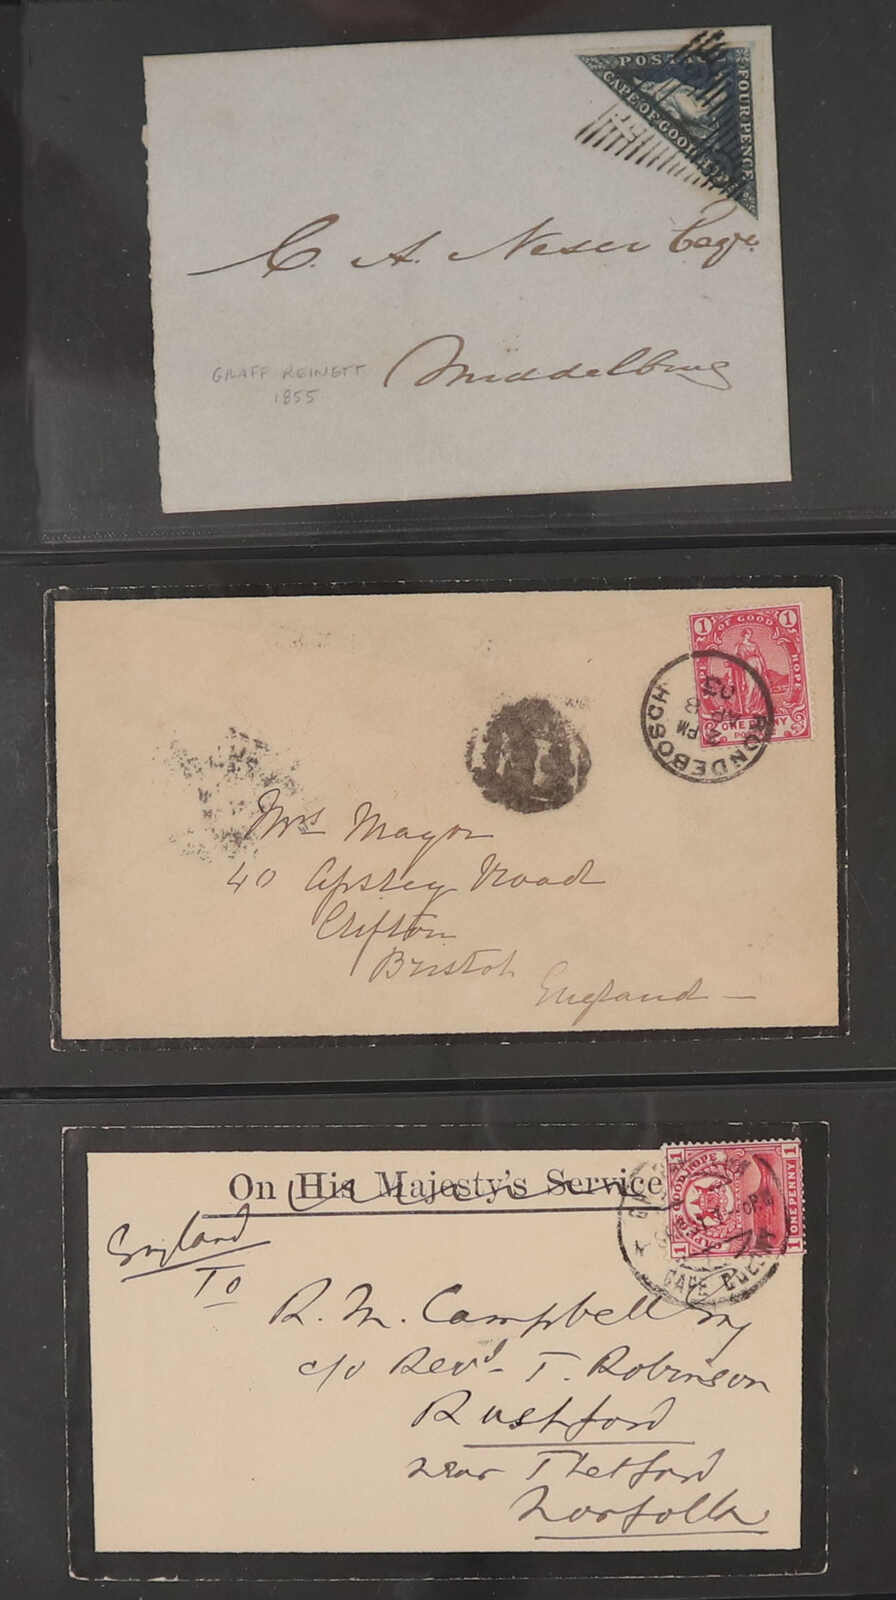 POSTAGE
FOUR PENCE
CAPE OF GOOD HOPE
C. A. Neser Esqre.
GRAFF REINETT
1855
Middelburg
1 OF GOOD 1
HOPE
ONE PENNY
RONDEBOSCH
PM
AP 8
03
Mrs Mayor
40 Apsley Road
Clifton
Bristol
England
On His Majesty's Service
England
To
CAPE OF GOOD HOPE
1 1
1 ONE PENNY
CAPE COLONY
R. M. Campbell Esq
c/o Revd. T. Robinson
Rushford
near Thetford
Norfolk